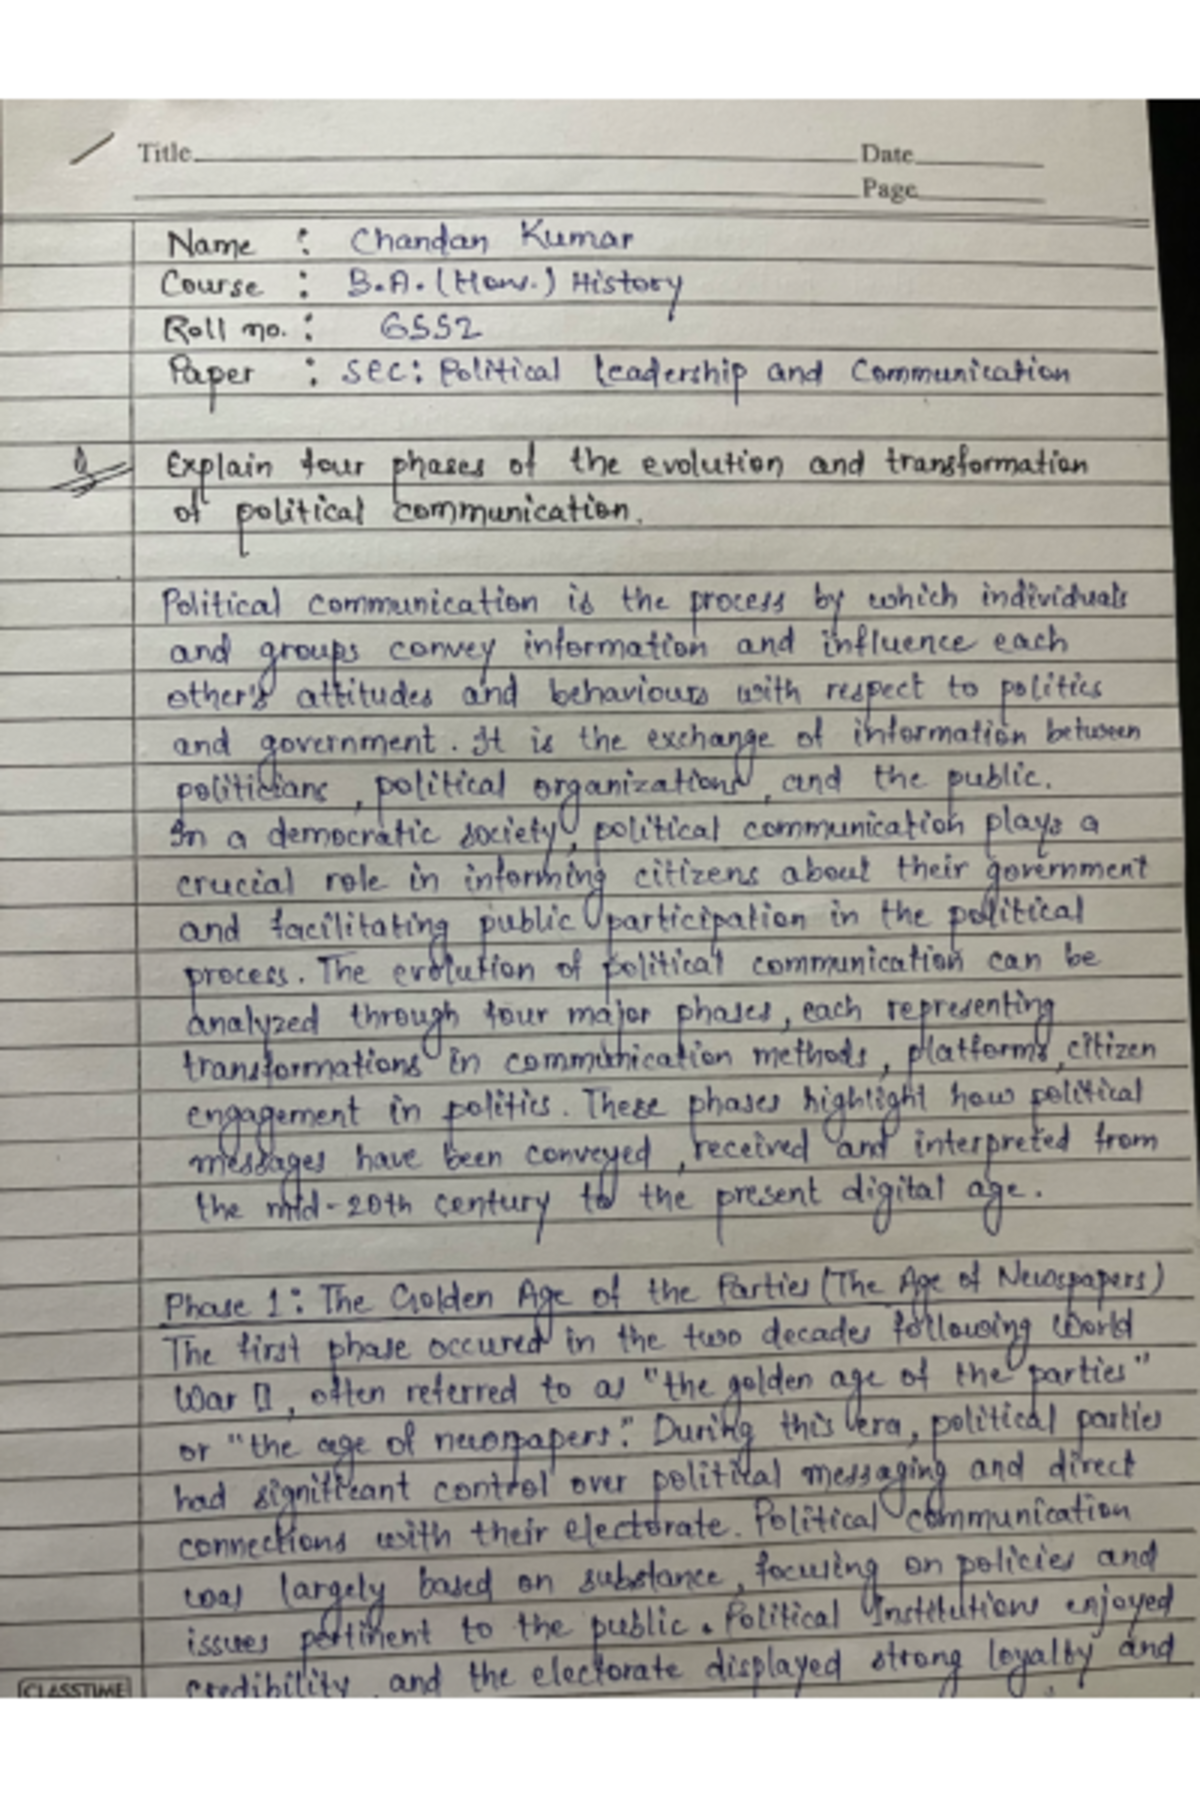 Title
Date
Page
Name : Chandan Kumar
Course : B.A. (Hons.) History
Roll no. : 6552
Paper : SEC: Political Leadership and Communication
Explain four phases of the evolution and transformation
of political communication.
Political communication is the process by which individuals
and groups convey information and influence each
other's attitudes and behaviours with respect to politics
and government. It is the exchange of information between
politicians, political organizations, and the public.
In a democratic society, political communication plays a
crucial role in informing citizens about their government
and facilitating public participation in the political
process. The evolution of political communication can be
analyzed through four major phases, each representing
transformations in communication methods, platforms, citizen
engagement in politics. These phases highlight how political
messages have been conveyed, received and interpreted from
the mid-20th century to the present digital age.
Phase 1: The Golden Age of the Parties (The Age of Newspapers)
The first phase occured in the two decades following World
War II, often referred to as "the golden age of the parties"
or "the age of newspapers." During this era, political parties
had significant control over political messaging and direct
connections with their electorate. Political communication
was largely based on substance, focusing on policies and
issues pertinent to the public. Political Institutions enjoyed
credibility, and the electorate displayed strong loyalty and
CLASSTIME